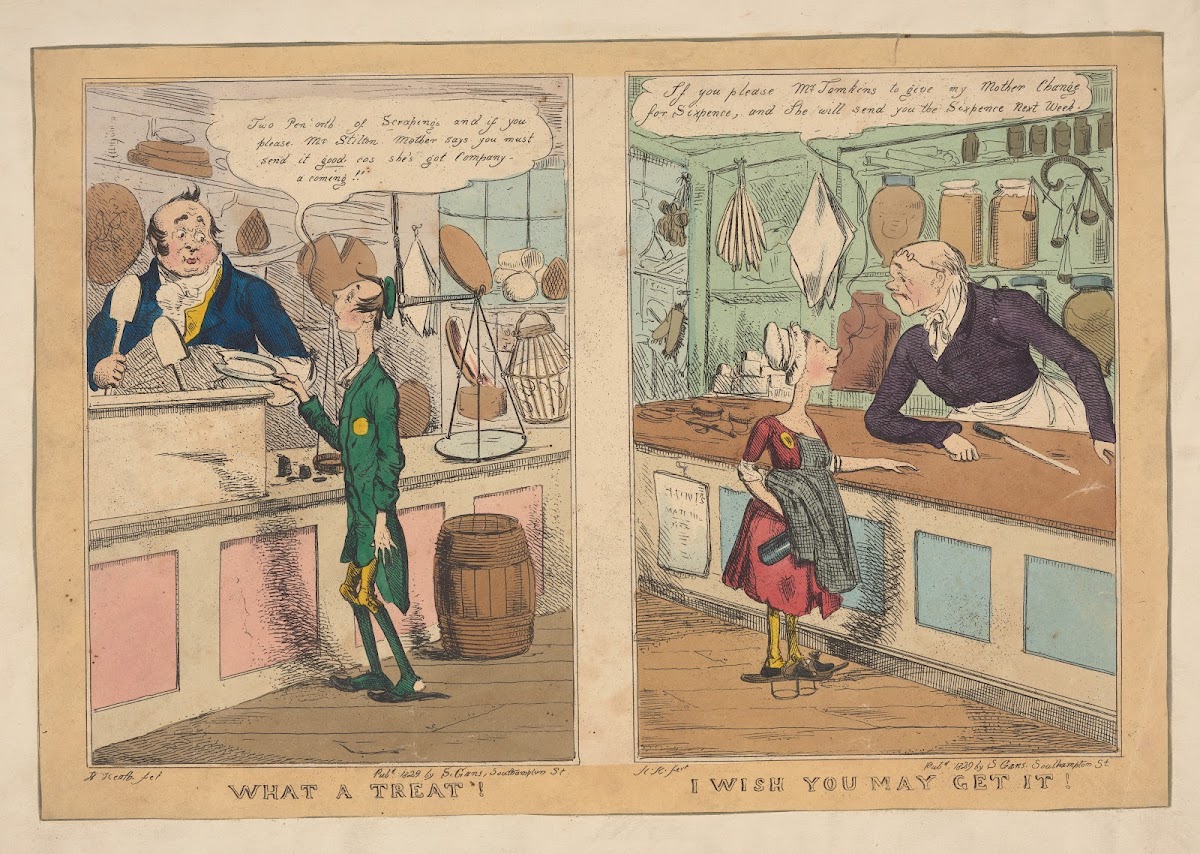 Two Pen'orth of Scrapings and if you
please Mr Stilton Mother says you must
send it good cos she's got Company
a coming!!
H Heath fet
Pubd 1829 by S. Gans, Southampton St
WHAT A TREAT!
If you please Mr Tomkins to give my Mother Change
for Sixpence, and She will send you the Sixpence Next Week.
H. H. fect
Pubd 1829 by S Gans. Southampton St
I WISH YOU MAY GET IT!